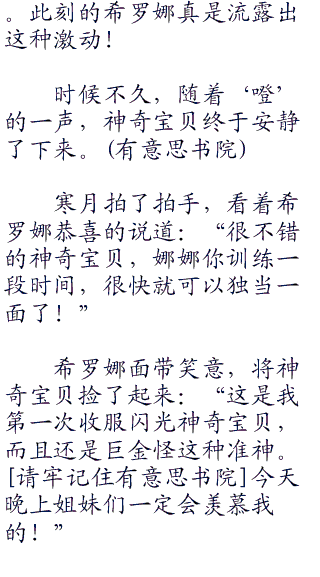 。此刻的希罗娜真是流露出
这种激动！
时候不久，随着‘噔’
的一声，神奇宝贝终于安静
了下来。(有意思书院)
寒月拍了拍手，看着希
罗娜恭喜的说道：“很不错
的神奇宝贝，娜娜你训练一
段时间，很快就可以独当一
面了！”
希罗娜面带笑意，将神
奇宝贝捡了起来：“这是我
第一次收服闪光神奇宝贝，
而且还是巨金怪这种准神。
[请牢记住有意思书院]今天
晚上姐妹们一定会羡慕我
的！”